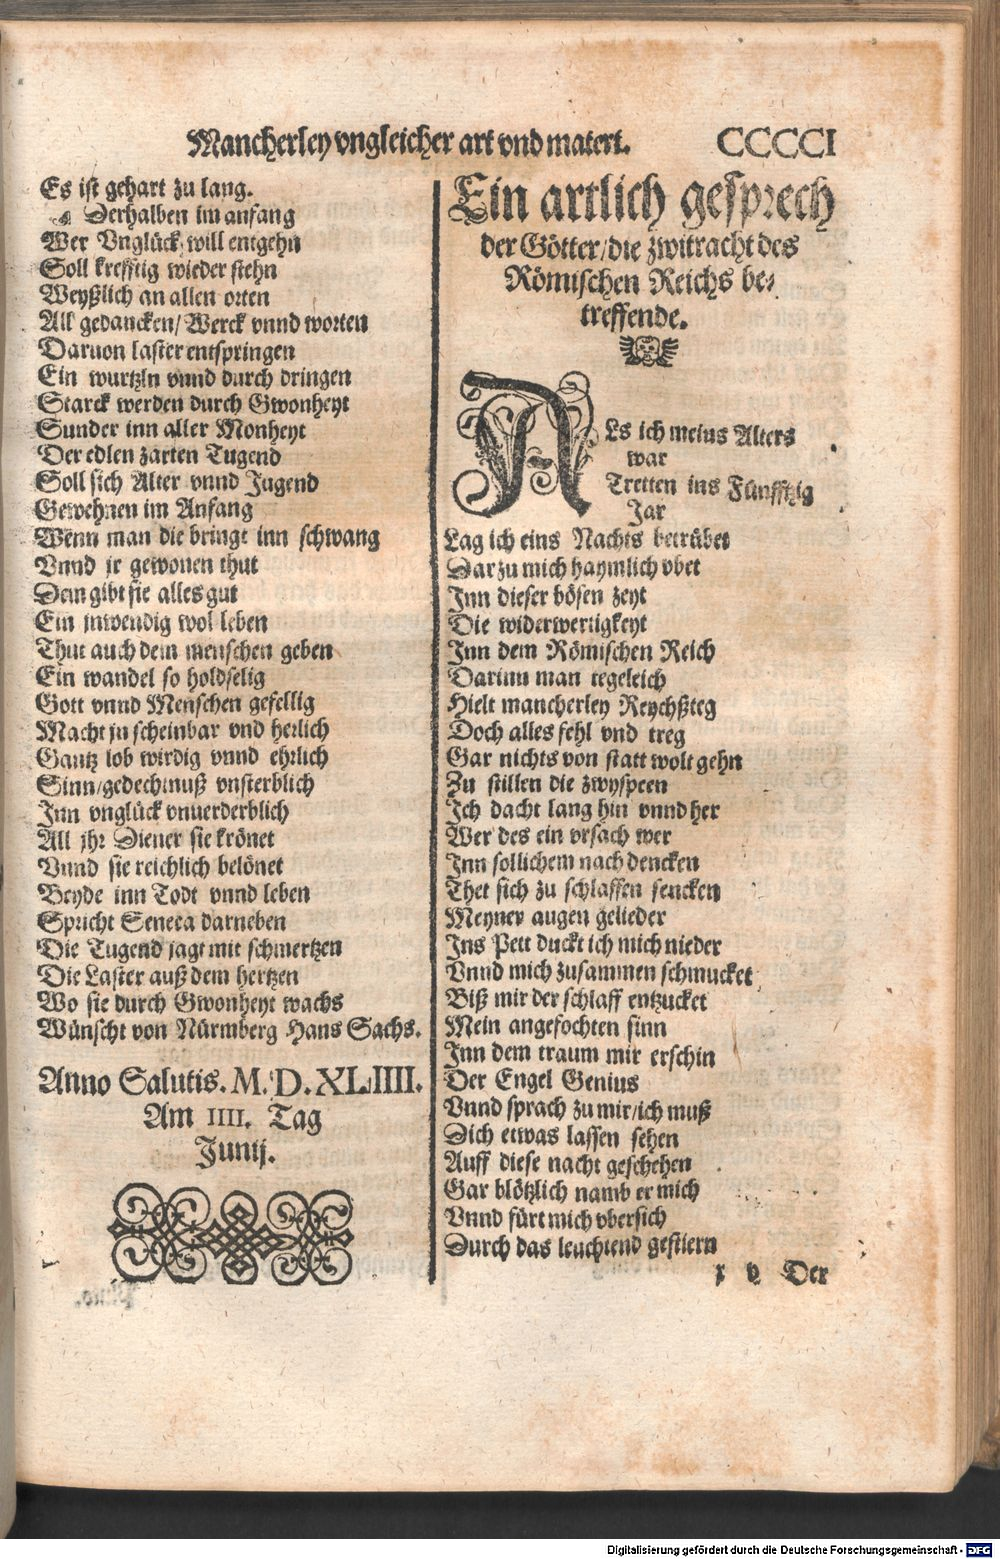 Mancherley vngleicher art vnd matert. CCCCCI
Es ist gehart zu lang.
Derhalben im anfang
Wer Vnglück will entgehn
Soll krefftig wieder stehn
Weyßlich an allen orten
All gedancken/ Werck vnnd worten
Daruon laster entspringen
Ein wurtzln vnnd durch dringen
Starck werden durch Gwonheyt
Sunder inn aller Monheyt
Der edlen zarten Tugend
Soll sich Alter vnnd Jugend
Gewehnen im Anfang
Wenn man die bringt inn schwang
Vnnd jr gewonen thut
Dem gibt sie alles gut
Ein inwendig wol leben
Thut auch dem menschen geben
Ein wandel so holdselig
Gott vnnd Menschen gefellig
Macht jn scheinbar vnd herlich
Gantz lob wirdig vnnd ehrlich
Sinn/gedechtnuß vnsterblich
Inn vnglück vnuerderblich
All jhr Diener sie krönet
Vnnd sie reichlich belönet
Beyde inn Todt vnnd leben
Spricht Seneca darneben
Die Tugend jagt mit schmertzen
Die Laster auß dem hertzen
Wo sie durch Gwonheyt wachs
Wünscht von Nürmberg Hans Sachs.
Anno Salutis. M.D.XLIIII.
Am IIII. Tag
Junij.
Ein artlich gesprech
der Götter/die zwitracht des
Römischen Reichs be-
treffende.
ALs ich meins Alters
war
Tretten ins Fünfftzig
Jar
Lag ich eins Nachts betrübet
Darzu mich haymlich vbet
Inn dieser bösen zeyt
Die widerwertigkeyt
Inn dem Römischen Reich
Darinn man tegeleich
Hielt mancherley Reychßteg
Doch alles fehl vnd treg
Gar nichts von statt wolt gehn
Zu stillen die zwyspeen
Ich dacht lang hin vnnd her
Wer des ein vrsach wer
Inn sollichem nach dencken
Thet sich zu schlaffen sencken
Meyner augen gelieder
Ins Pett duckt ich mich nieder
Vnnd mich zusammen schmucket
Biß mir der schlaff entzucket
Mein angefochten sinn
Inn dem traum mir erschin
Der Engel Genius
Vnnd sprach zu mir/ich muß
Dich etwas lassen sehen
Auff diese nacht geschehen
Gar blötzlich namb er mich
Vnnd fürt mich vbersich
Durch das leuchtend gestiern
Der
Digitalisierung gefördert durch die Deutsche Forschungsgemeinschaft - DFG